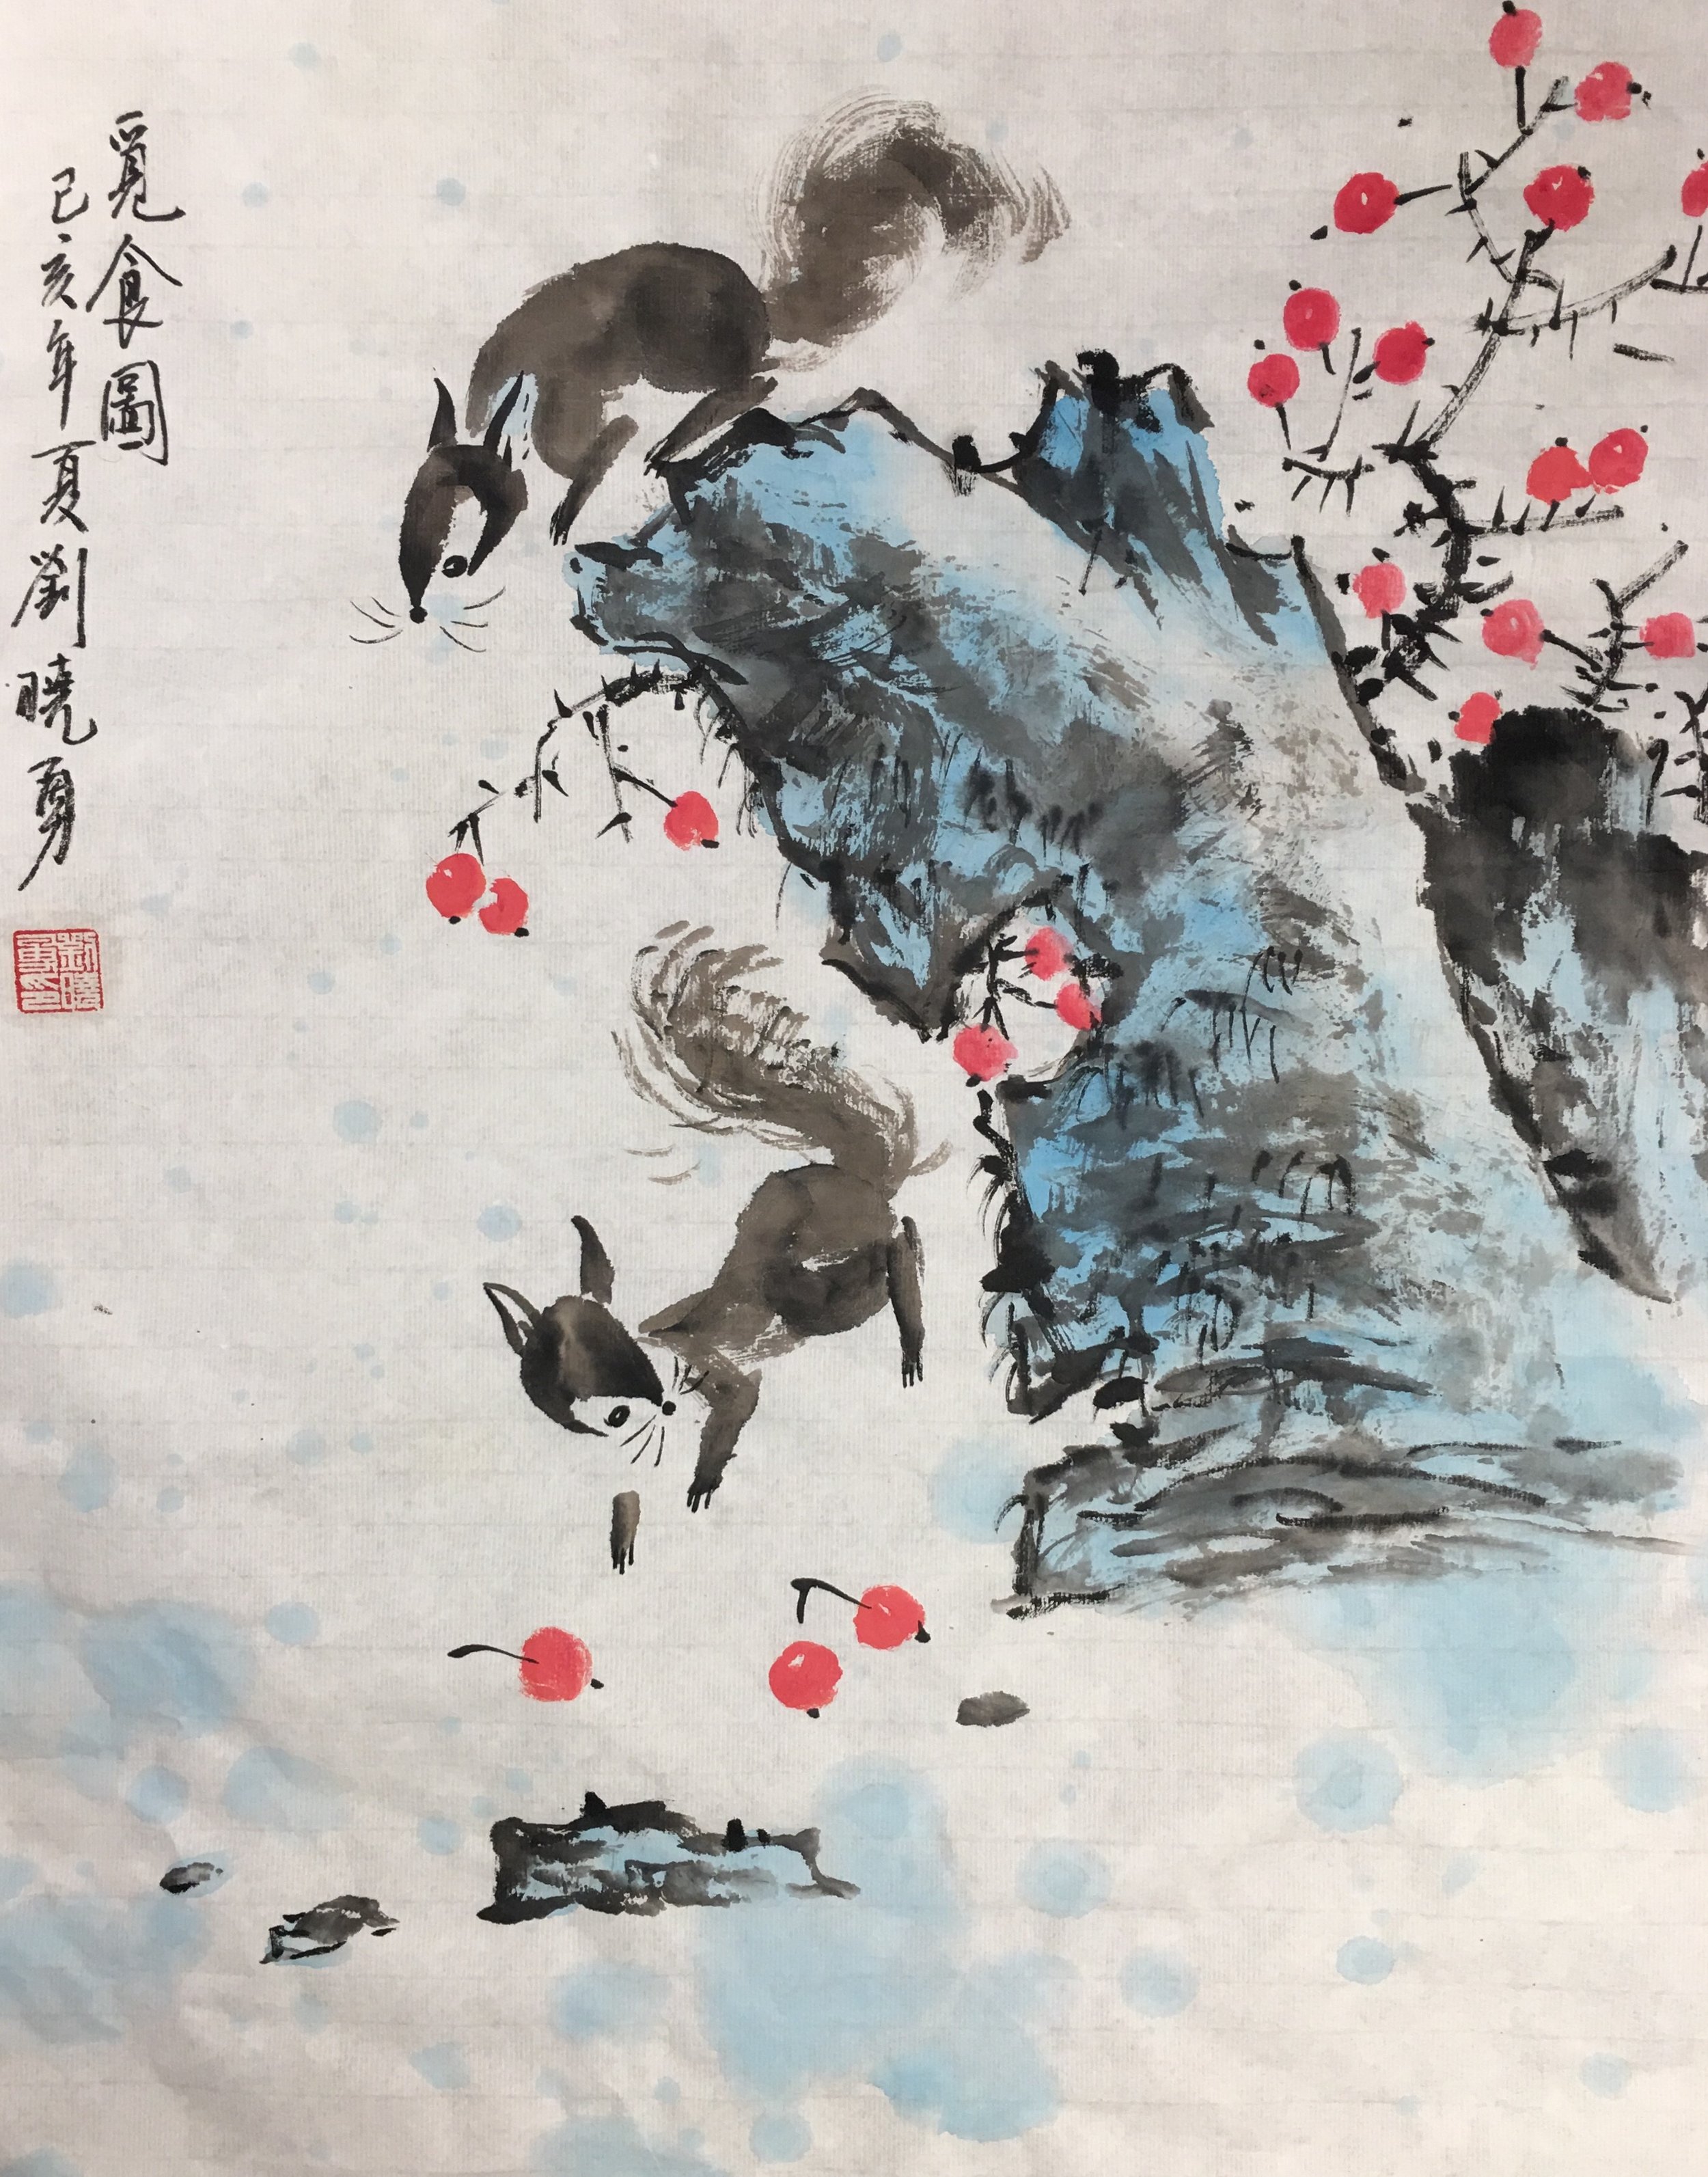 覓食圖
己亥年夏劉曉勇
劉曉
勇印